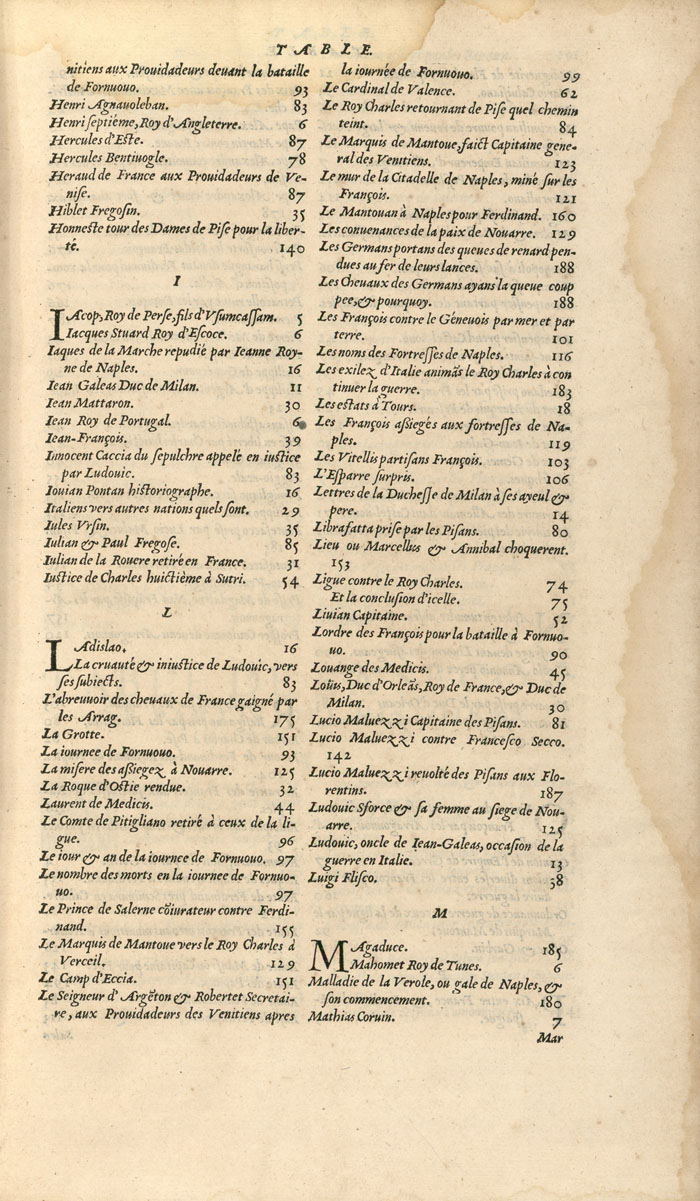 TABLE.
nitiens aux Prouidadeurs deuant la bataille
de Fornuouo. 93
Henri Agnauoleban. 83
Henri septieme, Roy d'Angleterre. 6
Hercules d'Este. 87
Hercules Bentiuogle. 78
Heraud de France aux Prouidadeurs de Ve-
nise. 87
Hiblet Fregosin. 35
Honneste tour des Dames de Pise pour la liber-
té. 140
I
IAcop, Roy de Perse, fils d'Vsumcassam. 5
Iacques Stuard Roy d'Escoce. 6
Iaques de la Marche repudié par Ieanne Roy-
ne de Naples. 16
Iean Galeas Duc de Milan. 11
Iean Mattaron. 30
Iean Roy de Portugal. 6
Iean-François. 39
Innocent Caccia du sepulchre appelé en iustice
par Ludouic. 83
Iouian Pontan historiographe. 16
Italiens vers autres nations quels sont. 29
Iules Vrsin. 35
Iulian & Paul Fregose. 85
Iulian de la Rouere retiré en France. 31
Iustice de Charles huictième à Sutri. 54
L
LAdislao. 16
La cruauté & iniustice de Ludouic, vers
ses subiects. 83
L'abreuuoir des cheuaux de France gaigné par
les Arrag. 175
La Grotte. 151
La iournee de Fornuouo. 93
La misere des assiegez à Nouarre. 125
La Roque d'Ostie rendue. 32
Laurent de Medicis. 44
Le Comte de Pitigliano retiré à ceux de la li-
gue. 96
Le iour & an de la iournee de Fornuouo. 97
Le nombre des morts en la iournee de Fornuo-
uo. 97
Le Prince de Salerne cõiurateur contre Ferdi-
nand. 155
Le Marquis de Mantoue vers le Roy Charles à
Verceil. 129
Le Camp d'Eccia. 151
Le Seigneur d'Argẽton & Robertet Secretai-
re, aux Prouidadeurs des Venitiens apres
la iournée de Fornuouo. 99
Le Cardinal de Valence. 62
Le Roy Charles retournant de Pise quel chemin
teint. 84
Le Marquis de Mantoue, faict Capitaine gene-
ral des Venitiens. 123
Le mur de la Citadelle de Naples, miné sur les
François. 121
Le Mantouan à Naples pour Ferdinand. 160
Les conuenances de la paix de Nouarre. 129
Les Germans portans des queues de renard pen-
dues au fer de leurs lances. 188
Les Cheuaux des Germans ayans la queue coup
pee, & pourquoy. 188
Les François contre le Géneuois par mer et par
terre. 101
Les noms des Fortresses de Naples. 116
Les exilez d'Italie animãs le Roy Charles à con
tinuer la guerre. 183
Les estats à Tours. 18
Les François assiegés aux fortresses de Na-
ples. 119
Les Vitellis partisans François. 103
L'Esparre surpris. 106
Lettres de la Duchesse de Milan à ses ayeul &
pere. 14
Librafatta prise par les Pisans. 80
Lieu ou Marcellus & Annibal choquerent.
153
Ligue contre le Roy Charles. 74
Et la conclusion d'icelle. 75
Liuian Capitaine. 52
Lordre des François pour la bataille à Fornuo-
uo. 90
Louange des Medicis. 45
Loüis, Duc d'Orleãs, Roy de France, & Duc de
Milan. 30
Lucio Maluezzi Capitaine des Pisans. 81
Lucio Maluezzi contre Francesco Secco.
142
Lucio Maluezzi reuolté des Pisans aux Flo-
rentins. 187
Ludouic Sforce & sa femme au siege de Nou-
arre. 125
Ludouic, oncle de Iean-Galeas, occasion de la
guerre en Italie. 13
Luigi Flisco. 38
M
MAgaduce. 185
Mahomet Roy de Tunes. 6
Malladie de la Verole, ou gale de Naples, &
son commencement. 180
Mathias Coruin. 7
Mar